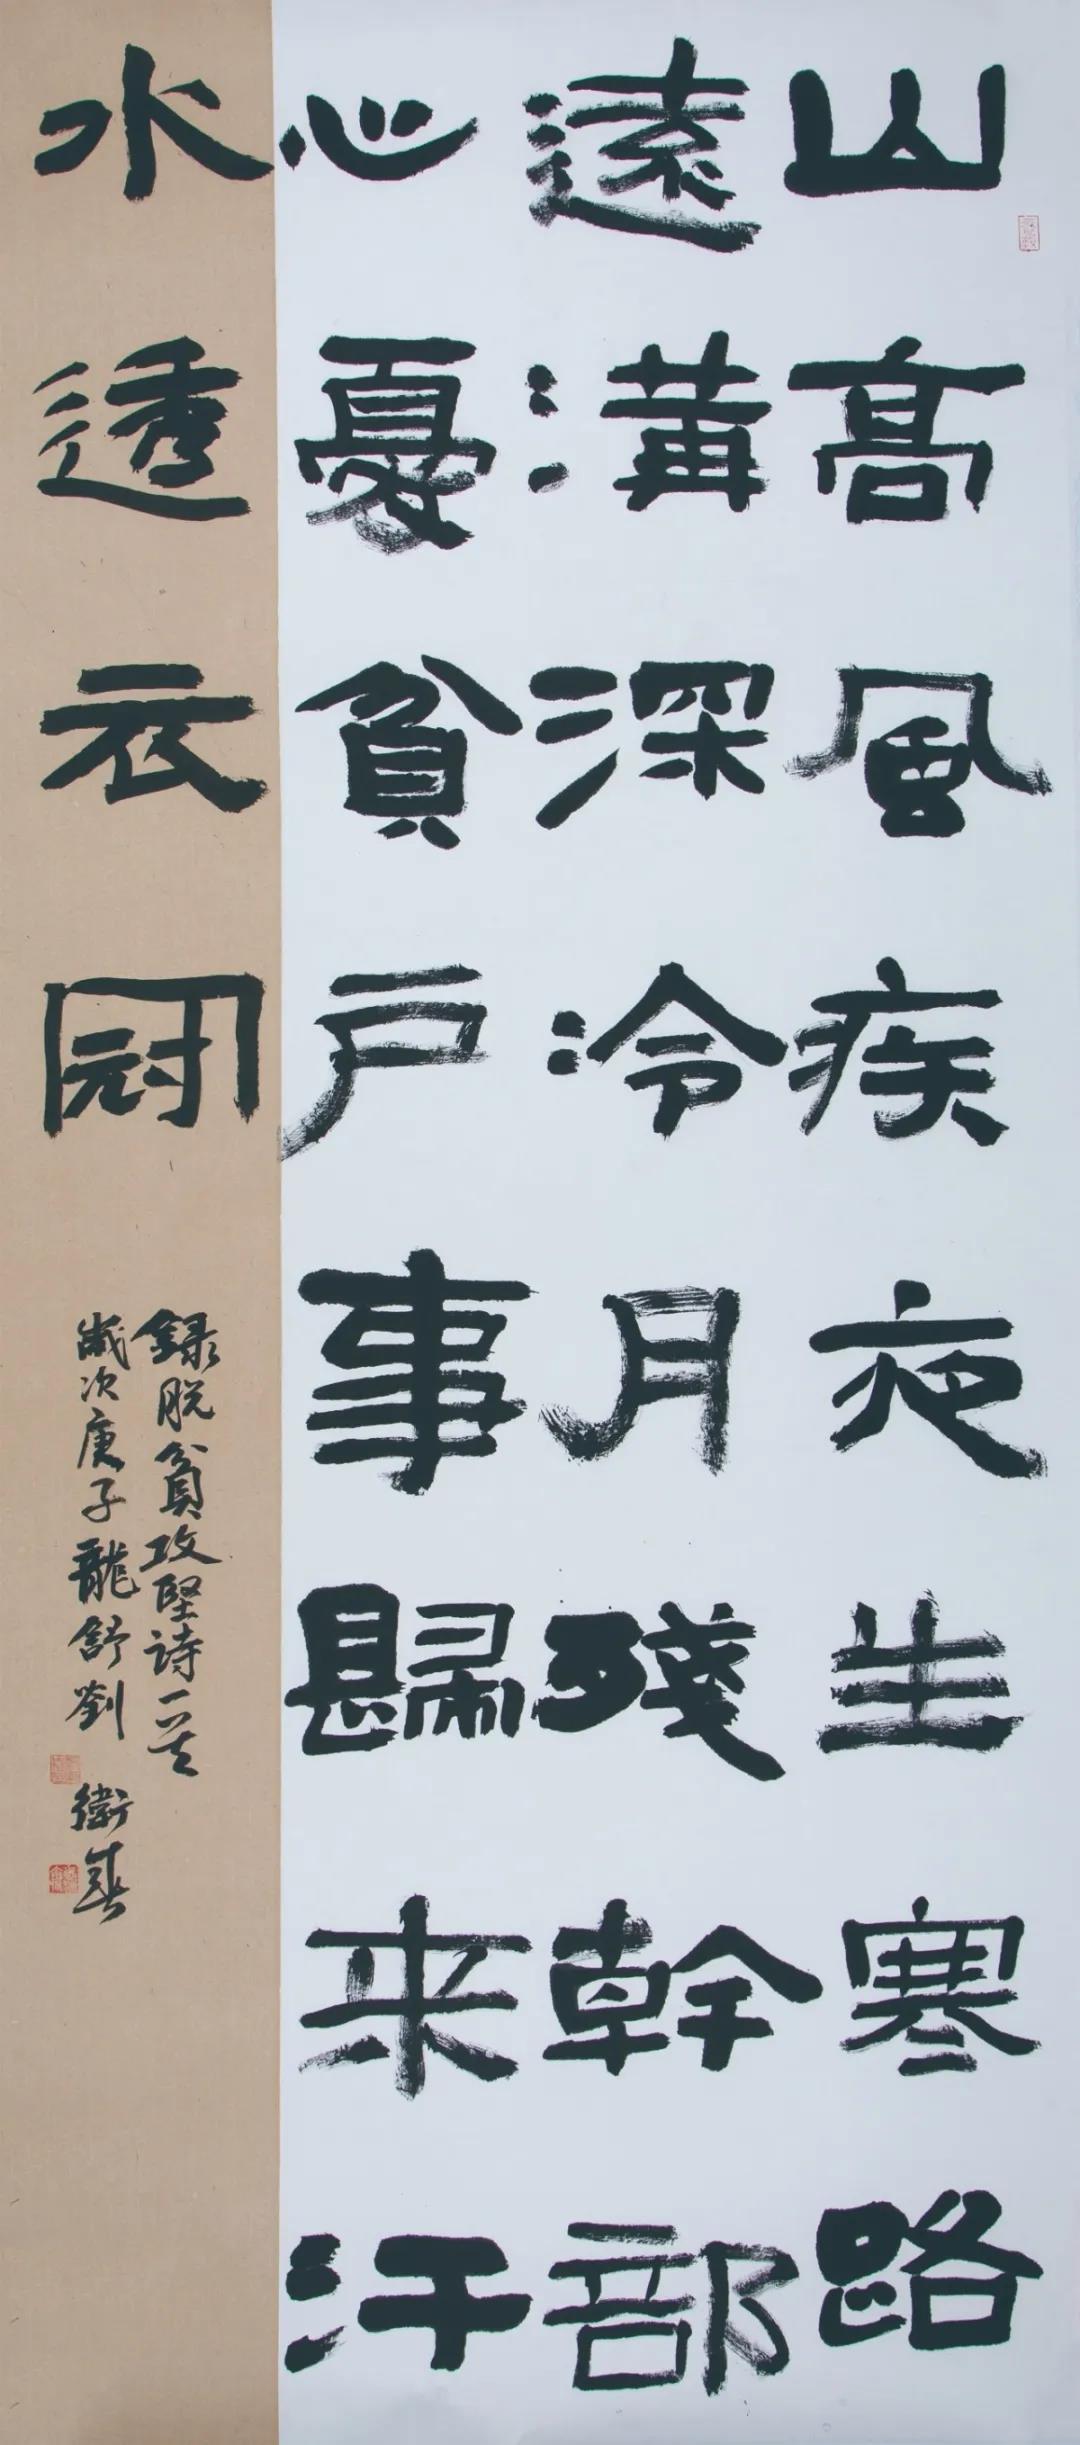 山高風疾夜生寒路
遠溝深冷月殘幹部
心憂貧戶事歸來汗
水透衣冠
録脫貧攻堅詩一首
歲次庚子龍舒劉衛東